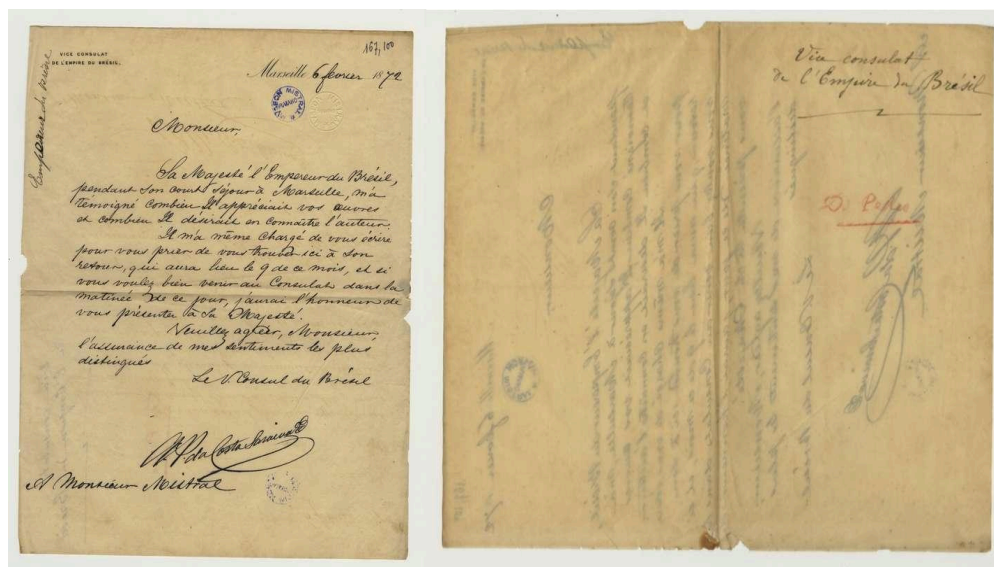 167,100
VICE CONSULAT
DE L'EMPIRE DU BRÉSIL.
Empereur du Brésil
Marseille 6 février 1872
Monsieur,
Sa Majesté l'Empereur du Brésil,
pendant son court séjour à Marseille, m'a
témoigné combien Il appréciait vos œuvres
et combien Il désirait en connaître l'auteur.
Il m'a même chargé de vous écrire
pour vous prier de vous trouver ici à son
retour, qui aura lieu le 9 de ce mois, et si
vous voulez bien venir au Consulat dans la
matinée de ce jour, j'aurai l'honneur de
vous présenter à Sa Majesté.
Veuillez agréer, Monsieur,
l'assurance de mes sentiments les plus
distingués
Le V. Consul du Brésil
da Costa Saraiva
A Monsieur Mistral
Vice consulat
de l'Empire du Brésil
D. Pedro